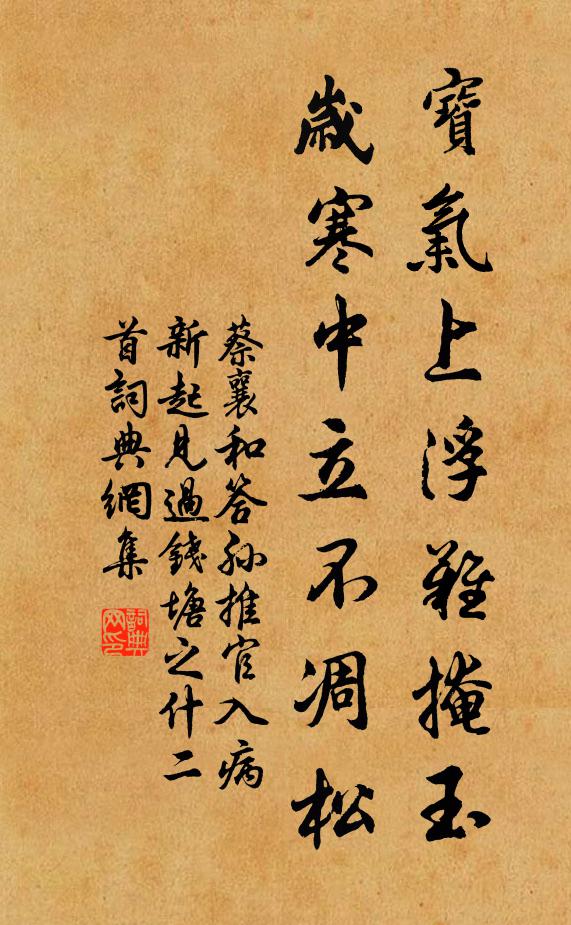 寶氣上浮難掩玉
歲寒中立不凋松
蔡襄和答孙推官入病
新起見過錢塘之什二
首詞典網集
詞典
网印